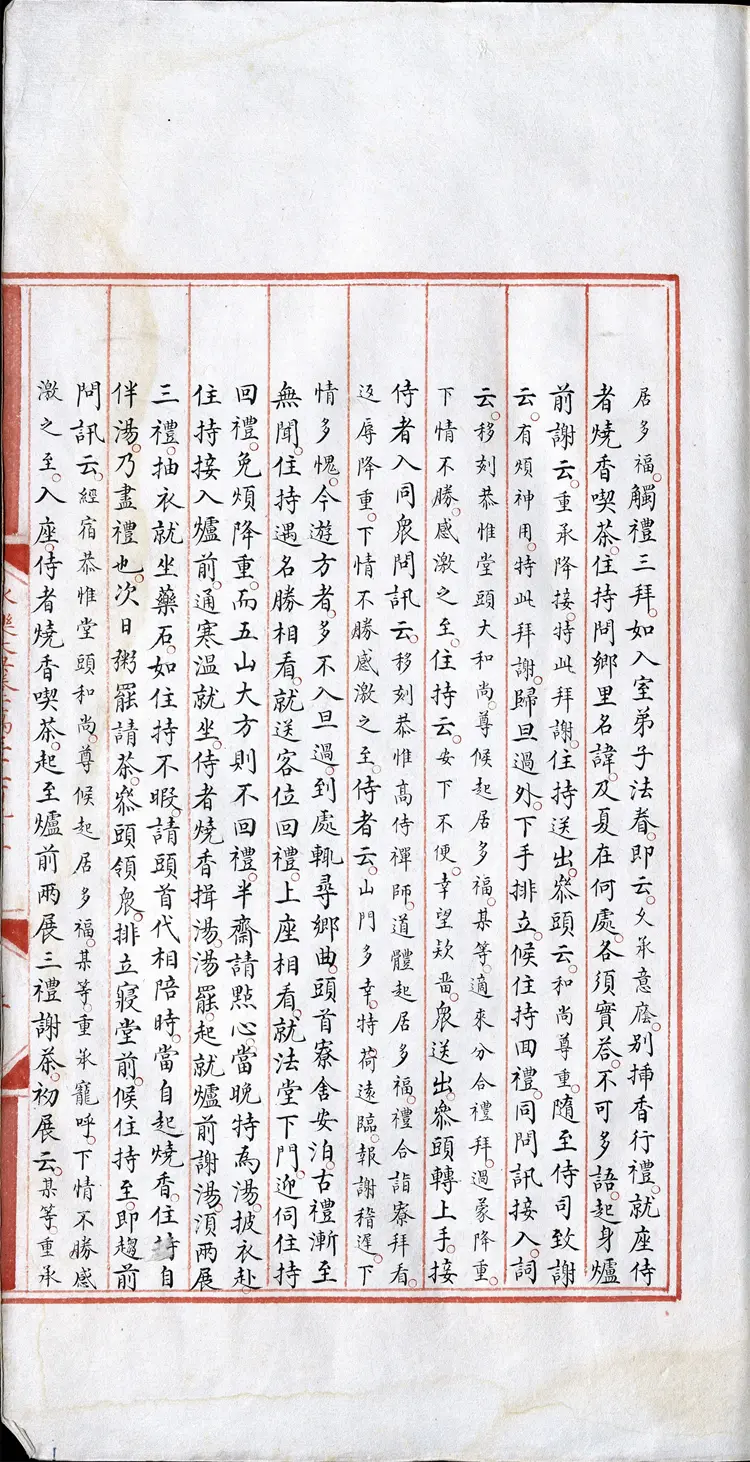 居多福。觸禮三拜。如入室弟子法眷。即云。久承意廕。別揷香行禮。就座侍
者燒香喫茶。住持問鄉里名諱。及夏在何處。各須實荅。不可多語。起身爐
前謝云。重承降接。特此拜謝。住持送出。叅頭云。和尚尊重。隨至侍司致謝
云。有煩神用。特此拜謝。歸旦過外。下手排立。候住持回禮。同問訊接入。詞
云。移刻恭惟堂頭大和尚。尊候起居多福。某等。適來分合禮拜。過蒙降重。
下情不勝。感激之至。住持云。安下不便。幸望欵畱。衆送出。叅頭轉上手。接
侍者入同衆問訊云。移刻恭惟高侍禪師。道體起居多福。禮合詣寮拜看。
返辱降重。下情不勝感激之至。侍者云。山門多幸。特荷遠臨。報謝稽遲。下
情多愧。今遊方者。多不入旦過。到處輒尋鄉曲。頭首寮舍安泊。古禮漸至
無聞。住持遇名勝相看。就送客位回禮。上座相看。就法堂下門。迎伺住持
回禮。免煩降重。而五山大方則不回禮。半齋請點心。當晚特為湯。披衣赴。
住持接入爐前。通寒温就坐。侍者燒香揖湯。湯罷。起就爐前謝湯。湏兩展
三禮。抽衣就坐藥石。如住持不暇。請頭首代相陪時。當自起燒香。住持自
伴湯。乃盡禮也。次日粥罷請茶。叅頭領衆。排立寢堂前。候住持至。即趨前
問訊云。經宿恭惟堂頭和尚。尊候起居多福。某等。重承寵呼。下情不勝感
激之至。入座。侍者燒香喫茶。起至爐前兩展三禮謝茶。初展云。某等。重承